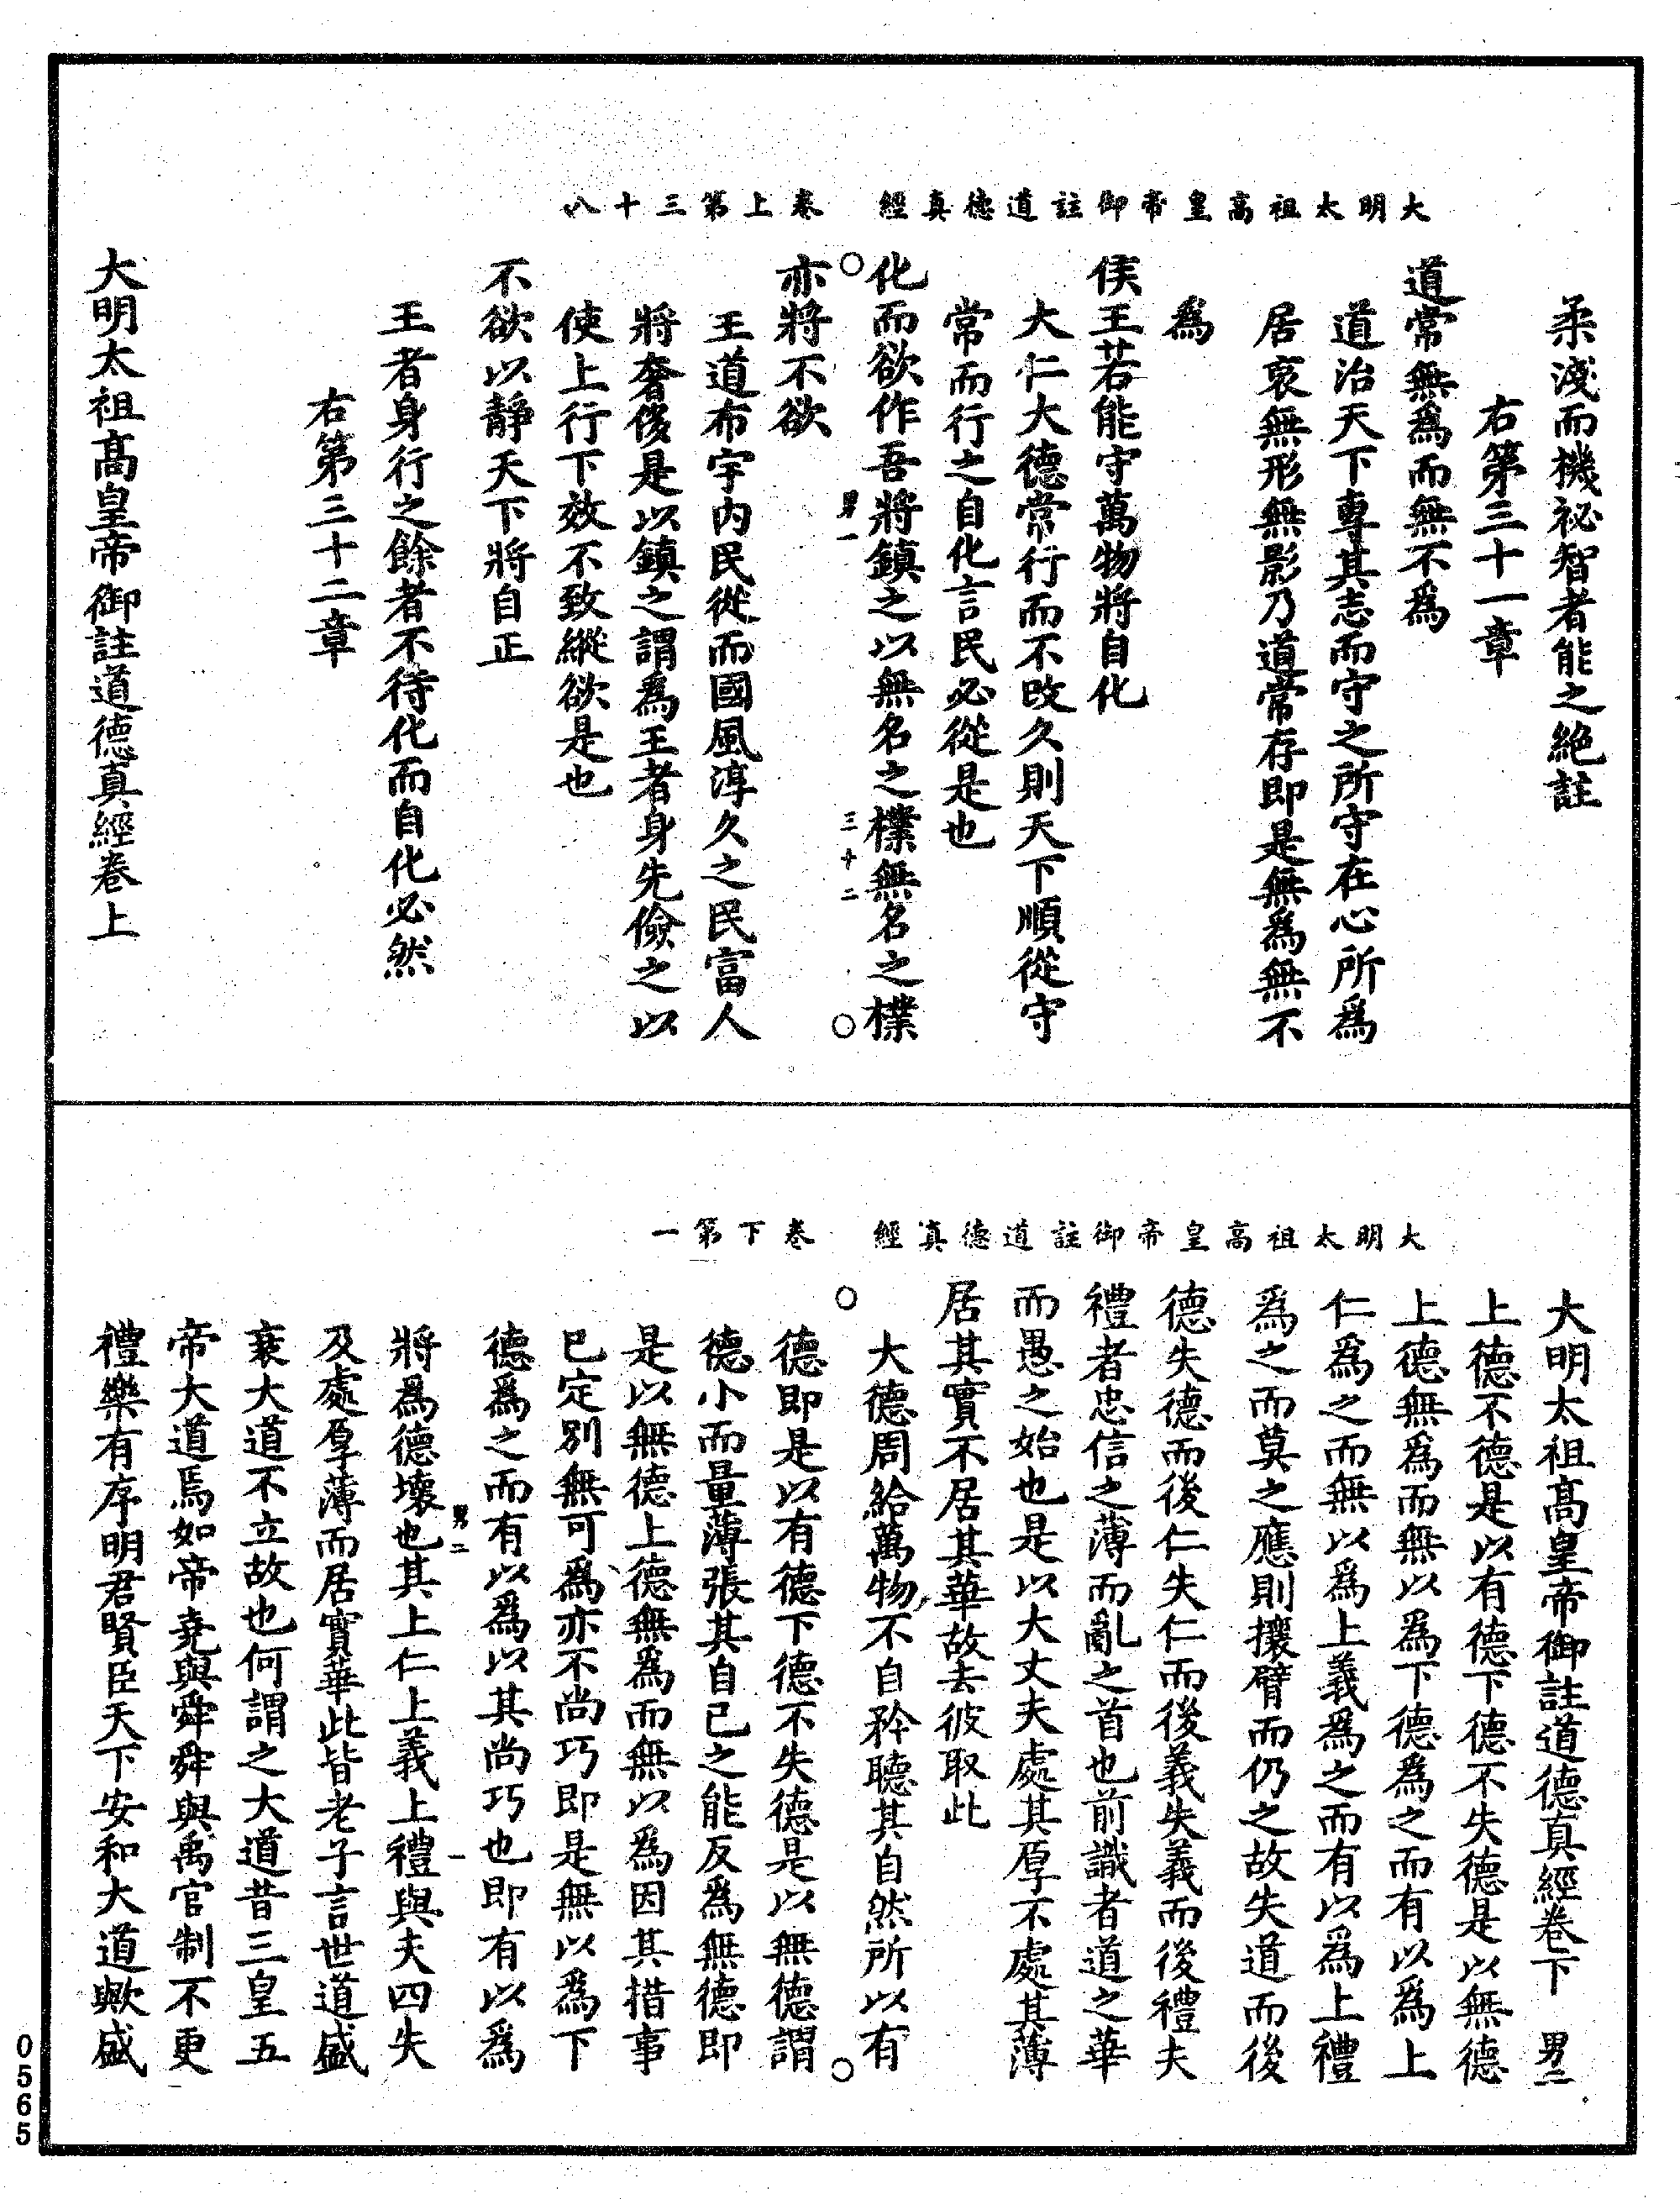 大明太祖高皇帝御註道德真經 卷上第三十八
柔淺而機祕智者能之絕註
右第三十一章
道常無爲而無不爲
道治天下專其志而守之所守在心所爲
居衷無形無影乃道常存即是無爲無不
爲
侯王若能守萬物將自化
大仁大德常行而不改久則天下順從守
常而行之自化言民必從是也
化而欲作吾將鎮之以無名之樸無名之樸
男一 三十二
亦將不欲
王道布宇內民從而國風淳久之民富人
將奢侈是以鎮之謂爲王者身先儉之以
使上行下效不致縱欲是也
不欲以靜天下將自正
王者身行之餘者不待化而自化必然
右第三十二章
大明太祖高皇帝御註道德真經卷上
大明太祖高皇帝御註道德真經 卷下第一
大明太祖高皇帝御註道德真經卷下 男二
上德不德是以有德下德不失德是以無德
上德無爲而無以爲下德爲之而有以爲上
仁爲之而無以爲上義爲之而有以爲上禮
爲之而莫之應則攘臂而仍之故失道而後
德失德而後仁失仁而後義失義而後禮夫
禮者忠信之薄而亂之首也前識者道之華
而愚之始也是以大丈夫處其厚不處其薄
居其實不居其華故去彼取此
大德周給萬物不自矜聽其自然所以有
德即是以有德下德不失德是以無德謂
德小而量薄張其自己之能反爲無德即
是以無德上德無爲而無以爲因其措事
已定別無可爲亦不尚巧即是無以爲下
德爲之而有以爲以其尚巧也即有以爲
男二 一
將爲德壞也其上仁上義上禮與夫四失
及處厚薄而居實華此皆老子言世道盛
衰大道不立故也何謂之大道昔三皇五
帝大道焉如帝堯與舜舜與禹官制不更
禮樂有序明君賢臣天下安和大道歟盛
0565